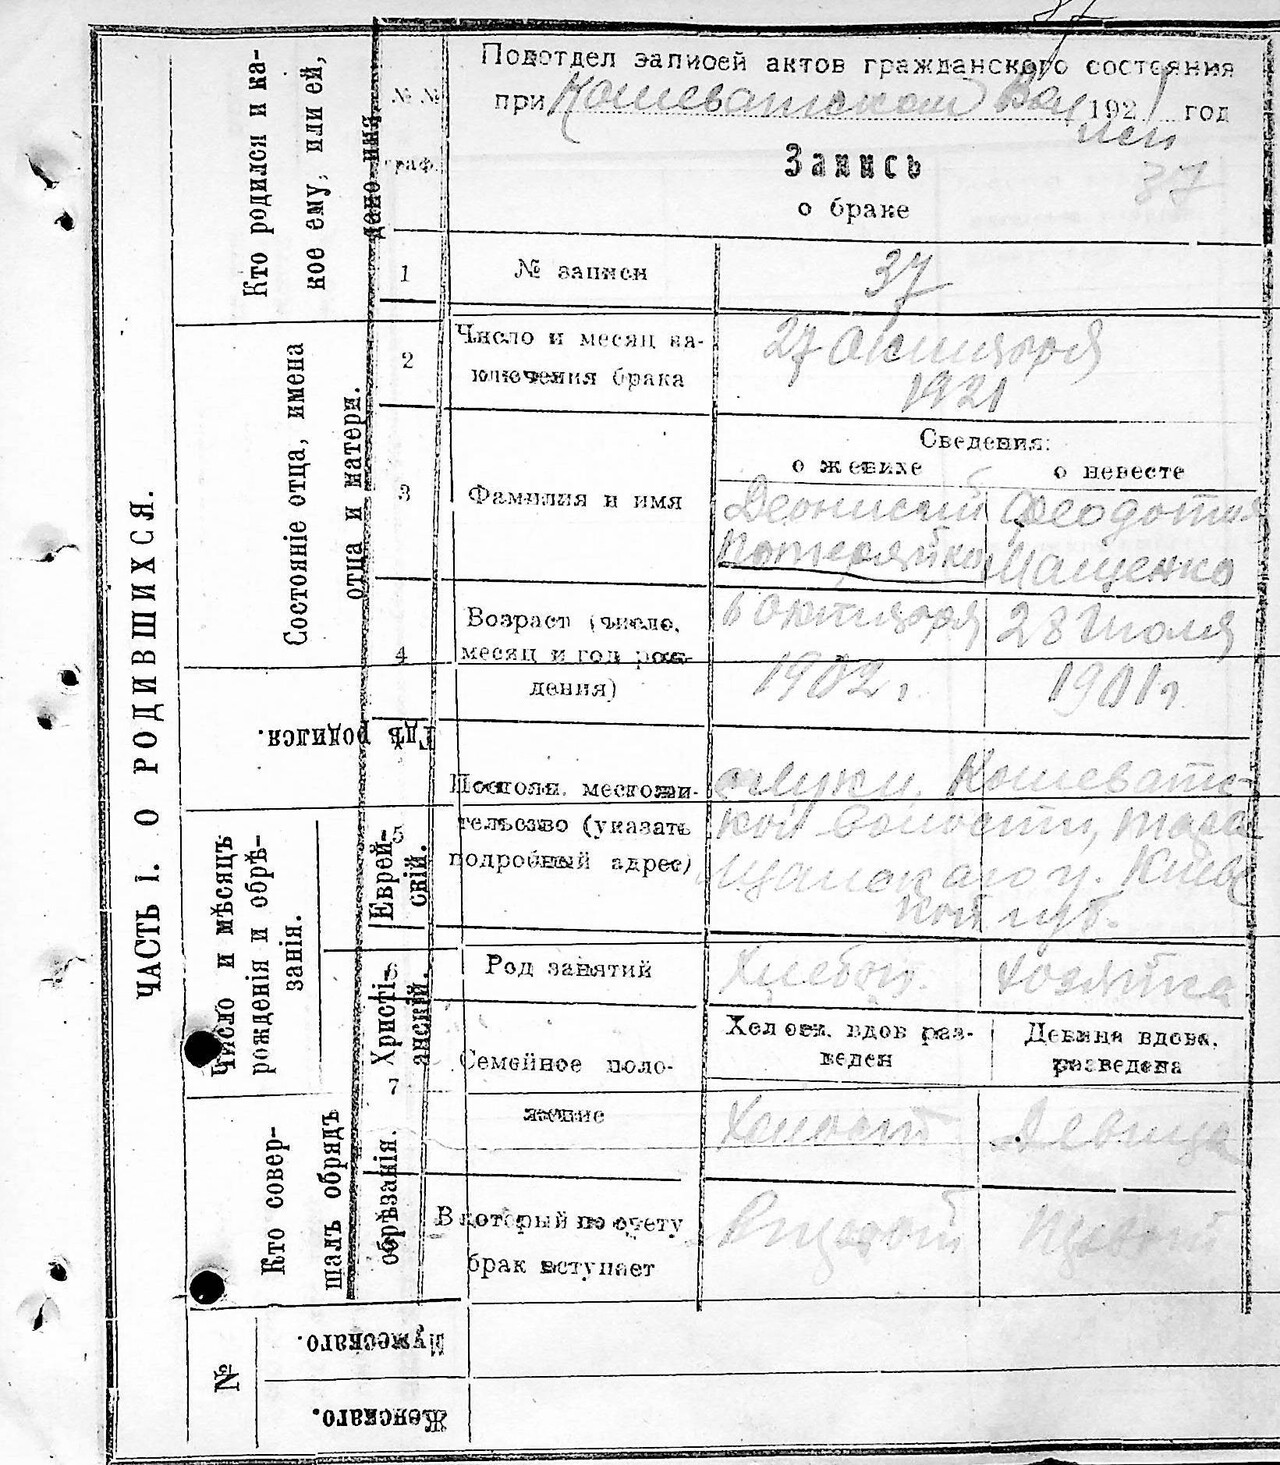 37
Подотдел записей актов гражданского состояния
при Кошеватском Вол 1921 год
37
Запись
о браке
№№ граф.
1 № записи 37
2 Число и месяц заключения брака 27 октября 1921
Сведения:
о женихе о невесте
3 Фамилия и имя
Деонисий Потеряйко
Феодотия Мащенко
4 Возраст (число, месяц и год рождения)
6 октября 1902 г.
28 Июля 1901 г.
5 Постоян. местожительство (указать подробный адрес)
Луки, Кошеватс-
кой волости, Тара
щанского у. Киевс
кой губ.
6 Род занятий Хлебоп. Хозяйка
7 Семейное положение
Холост. вдов разведен
Девица вдова, разведена
Холостой Девица
В который по счету брак вступает
Первый
ЧАСТЬ I. О РОДИВШИХСЯ.
Кто родился и ка-
кое ему, или ей,
дано имя
Состояніе отца, имена
отца и матери.
Гдѣ родился.
Число и мѣсяцъ
рожденія и обрѣ-
занія.
Еврей-
скій.
Христі-
анскій.
Кто совер-
шалъ обрядъ
обрѣзанія.
№
Мужескаго.
Женскаго.